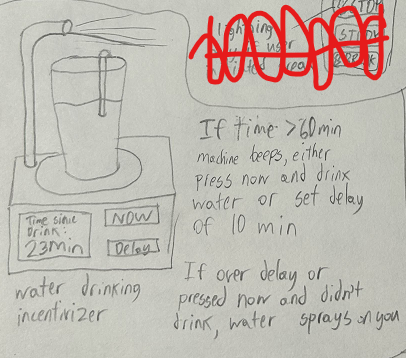 If time >60min
machine beeps, either
press now and drink
water or set delay
of 10 min
Time since
Drink:
23min
NOW
Delay
water drinking
incentivizer
If over delay or
pressed now and didn't
drink, water sprays on you